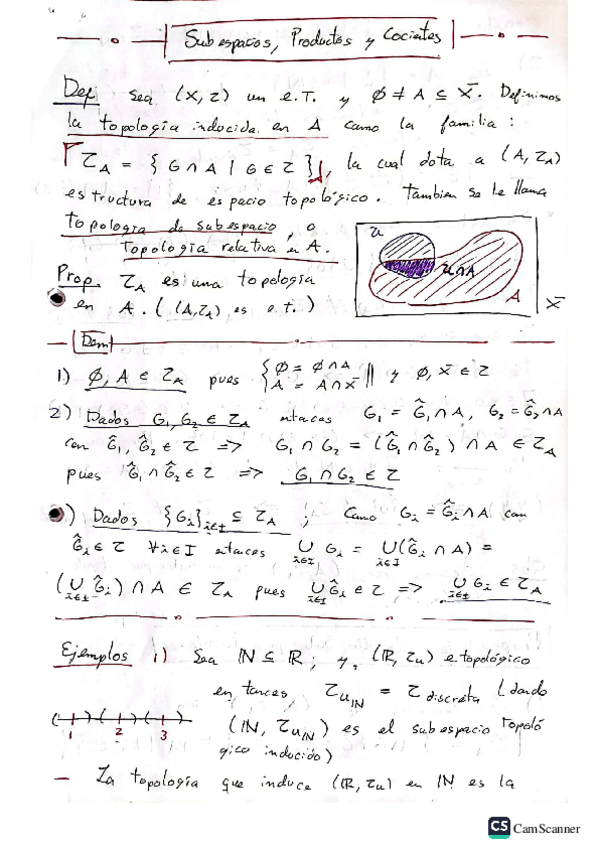 Subespacios, Productos y Cocientes
Def Sea (X, τ) un e.T. y ∅ ≠ A ⊆ X. Definimos
la topología inducida en A como la familia:
τ_A = { G ∩ A | G ∈ τ }, la cual dota a (A, τ_A)
estructura de espacio topológico. Tambien se le llama
topología de subespacio, o
Topología relativa en A.
U
U∩A
A
X
Prop. τ_A es una topología
en A. ( (A, τ_A) es e.t. )
Dem
1) ∅, A ∈ τ_A pues { ∅ = ∅ ∩ A
A = A ∩ X || y ∅, X ∈ τ
2) Dados G₁, G₂ ∈ τ_A entonces G₁ = Ĝ₁ ∩ A, G₂ = Ĝ₂ ∩ A
con Ĝ₁, Ĝ₂ ∈ τ => G₁ ∩ G₂ = (Ĝ₁ ∩ Ĝ₂) ∩ A ∈ τ_A
pues Ĝ₁ ∩ Ĝ₂ ∈ τ => G₁ ∩ G₂ ∈ τ
) Dados {G_i}_{i∈I} ⊆ τ_A ; Como G_i = Ĝ_i ∩ A con
Ĝ_i ∈ τ ∀i∈I entonces ∪_{i∈I} G_i = ∪_{i∈I} (Ĝ_i ∩ A) =
(∪_{i∈I} Ĝ_i) ∩ A ∈ τ_A pues ∪_{i∈I} Ĝ_i ∈ τ => ∪_{i∈I} G_i ∈ τ_A
Ejemplos 1) Sea ℕ ⊆ ℝ; y, (ℝ, τ_u) e topológico
entonces, τ_{u_ℕ} = τ_discreta (dando
1 2 3
(ℕ, τ_{u_ℕ}) es el subespacio topoló
gico inducido)
— La topología que induce (ℝ, τ_u) en ℕ es la
CS CamScanner